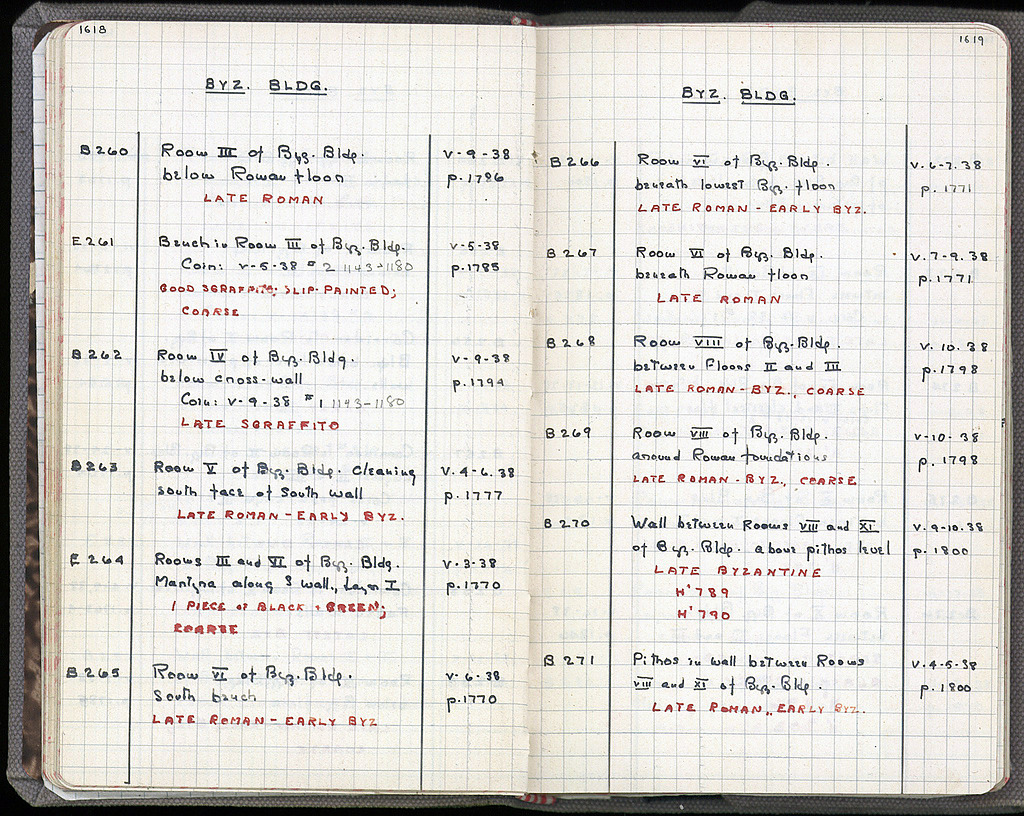 1618
BYZ. BLDG.
B 260 Room III of Byz. Bldg. V-9-38
below Roman floor p. 1786
LATE ROMAN
E 261 Bench in Room III of Byz. Bldg. V-5-38
Coin: V-5-38 #2 1143-1180 p. 1785
GOOD SGRAFFITO; SLIP-PAINTED;
COARSE
B 262 Room IV of Byz. Bldg. V-9-38
below cross-wall p. 1794
Coin: V-9-38 #1 1143-1180
LATE SGRAFFITO
B 263 Room V of Byz. Bldg. Cleaning V.4-6.38
south face of South wall p. 1777
LATE ROMAN - EARLY BYZ.
E 264 Rooms III and VI of Byz. Bldg. V.3-38
Martyna along S wall, Layer I p. 1770
1 PIECE OF BLACK + GREEN;
COARSE
B 265 Room VI of Byz. Bldg. V.6.38
South bench p. 1770
LATE ROMAN - EARLY BYZ
1619
BYZ. BLDG.
B 266 Room VI of Byz. Bldg. V.6-7.38
beneath lowest Byz. floor p. 1771
LATE ROMAN - EARLY BYZ.
B 267 Room VI of Byz. Bldg. V.7-9.38
beneath Roman floor p. 1771
LATE ROMAN
B 268 Room VIII of Byz. Bldg. V. 10.38
between Floors II and III p. 1798
LATE ROMAN-BYZ., COARSE
B 269 Room VIII of Byz. Bldg. V-10-38
around Roman foundations p. 1798
LATE ROMAN - BYZ., COARSE
B 270 Wall between Rooms VIII and XI V.9-10.38
of Byz. Bldg. above pithos level p. 1800
LATE BYZANTINE
H'789
H'790
B 271 Pithos in wall between Rooms V.4-5-38
VIII and XI of Byz. Bldg. p. 1800
LATE ROMAN, EARLY BYZ.